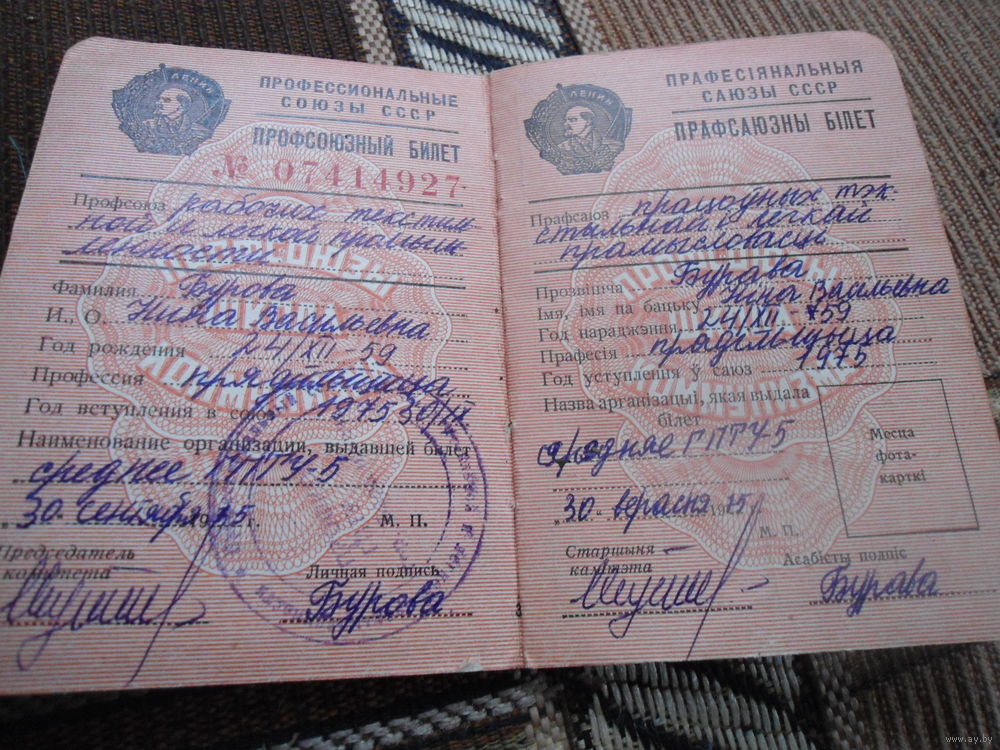 ЛЕНИН
ПРОФЕССИОНАЛЬНЫЕ
СОЮЗЫ СССР
ПРОФСОЮЗНЫЙ БИЛЕТ
№ 07414927
Профсоюз рабочих текстиль
ной и легкой промыш
ленности
Фамилия Бурова
И., О. Нина Васильевна
Год рождения 24/XII-59
Профессия прядильщица
Год вступления в союз 1975 30/IX
Наименование организации, выдавшей билет
среднее ГПТУ-5
„30“ сентября 1975 г. М. П.
Председатель
комитета
Личная подпись
Бурова
ЛЕНИН
ПРАФЕСІЯНАЛЬНЫЯ
САЮЗЫ СССР
ПРАФСАЮЗНЫ БІЛЕТ
Прафсаюз працоўных тэк-
стыльнай і лёгкай
прамысловасці
Прозвішча Бурава
Імя, імя па бацьку Ніна Васільеўна
Год нараджэння 24/XII-59
Прафесія прадзільшчыца
Год уступлення ў саюз 1975
Назва арганізацыі, якая выдала
білет
сярэдняе ГПТУ-5
„30“ верасня 1975 г.
М. П.
Месца
фота-
карткі
Старшыня
камітэта
Асабісты подпіс
Бурава
www.ay.by